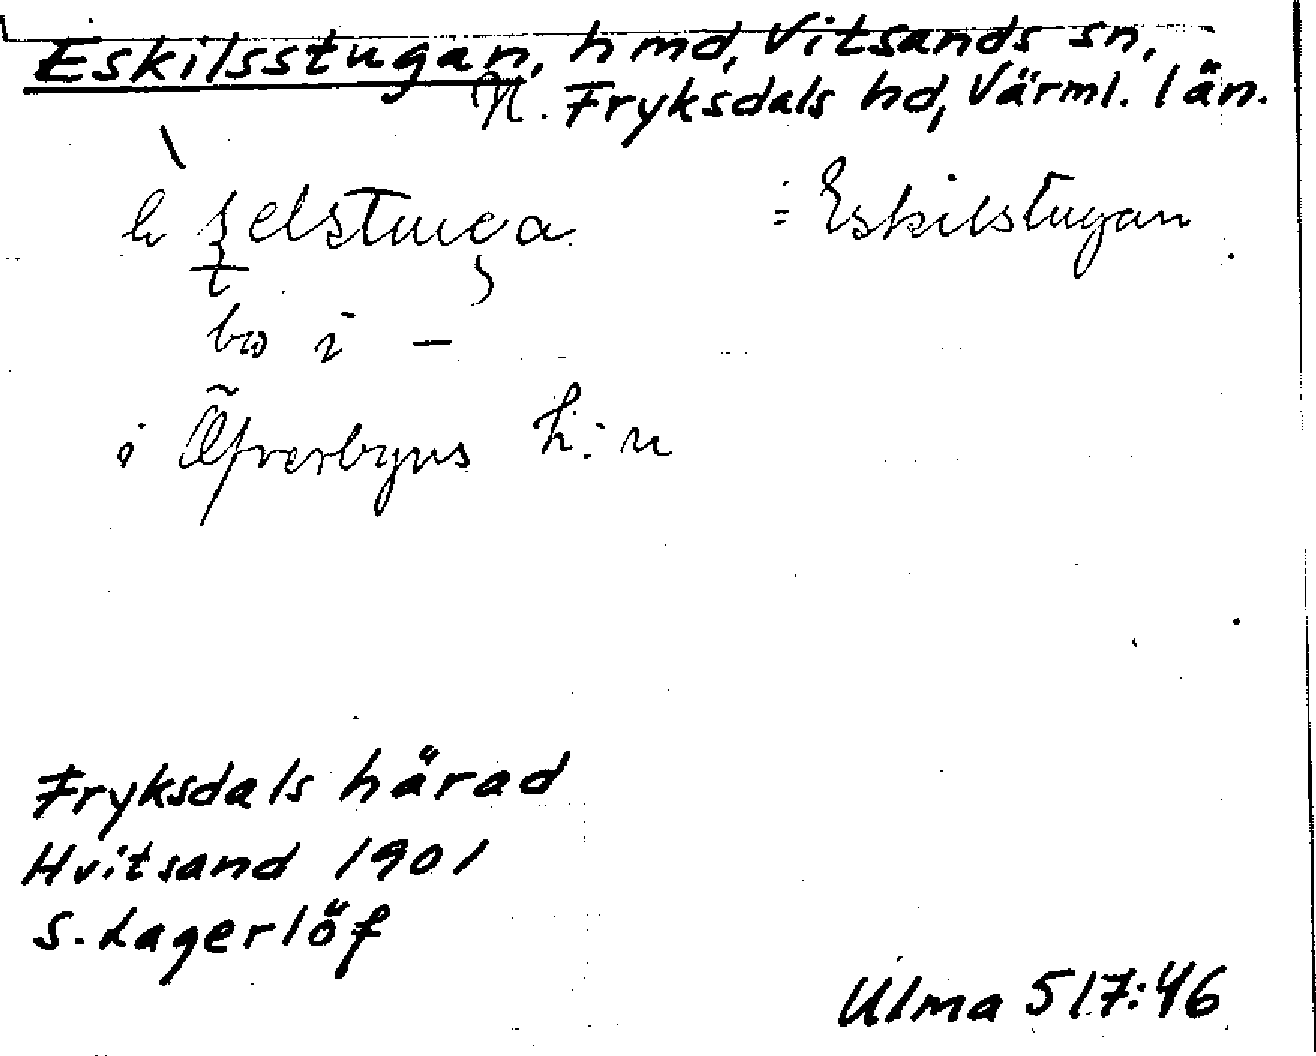 Eskilsstugan, hmd, Vitsands sn,
N. Fryksdals hd, Värml. län.
= Eskilstugan
bo i –
i Öfverbyns h:n
Fryksdals härad
Hvitsand 1901
S. Lagerlöf
Ulma 517:46